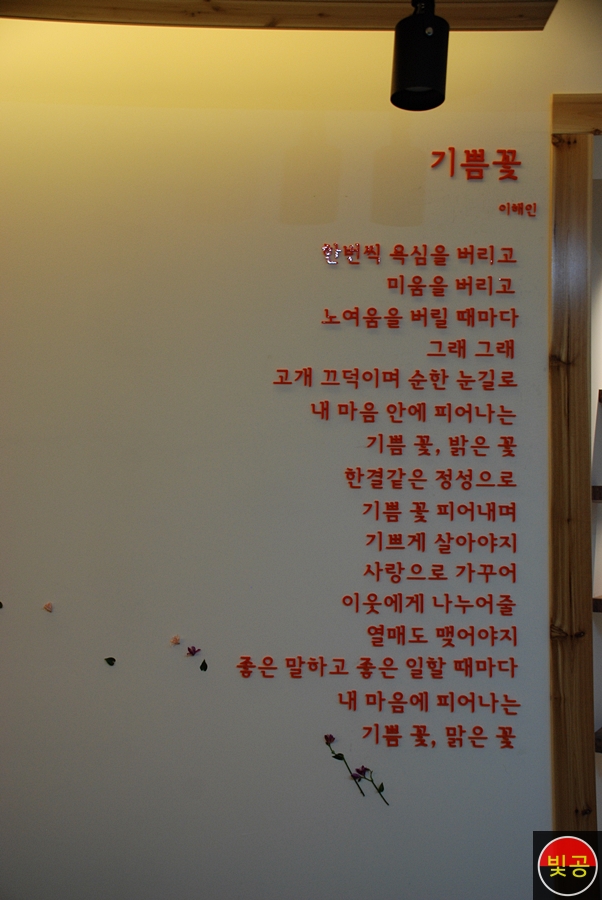 기쁨꽃
이해인
한번씩 욕심을 버리고
미움을 버리고
노여움을 버릴 때마다
그래 그래
고개 끄덕이며 순한 눈길로
내 마음 안에 피어나는
기쁨 꽃, 밝은 꽃
한결같은 정성으로
기쁨 꽃 피어내며
기쁘게 살아야지
사랑으로 가꾸어
이웃에게 나누어줄
열매도 맺어야지
좋은 말하고 좋은 일할 때마다
내 마음에 피어나는
기쁨 꽃, 맑은 꽃
빛공